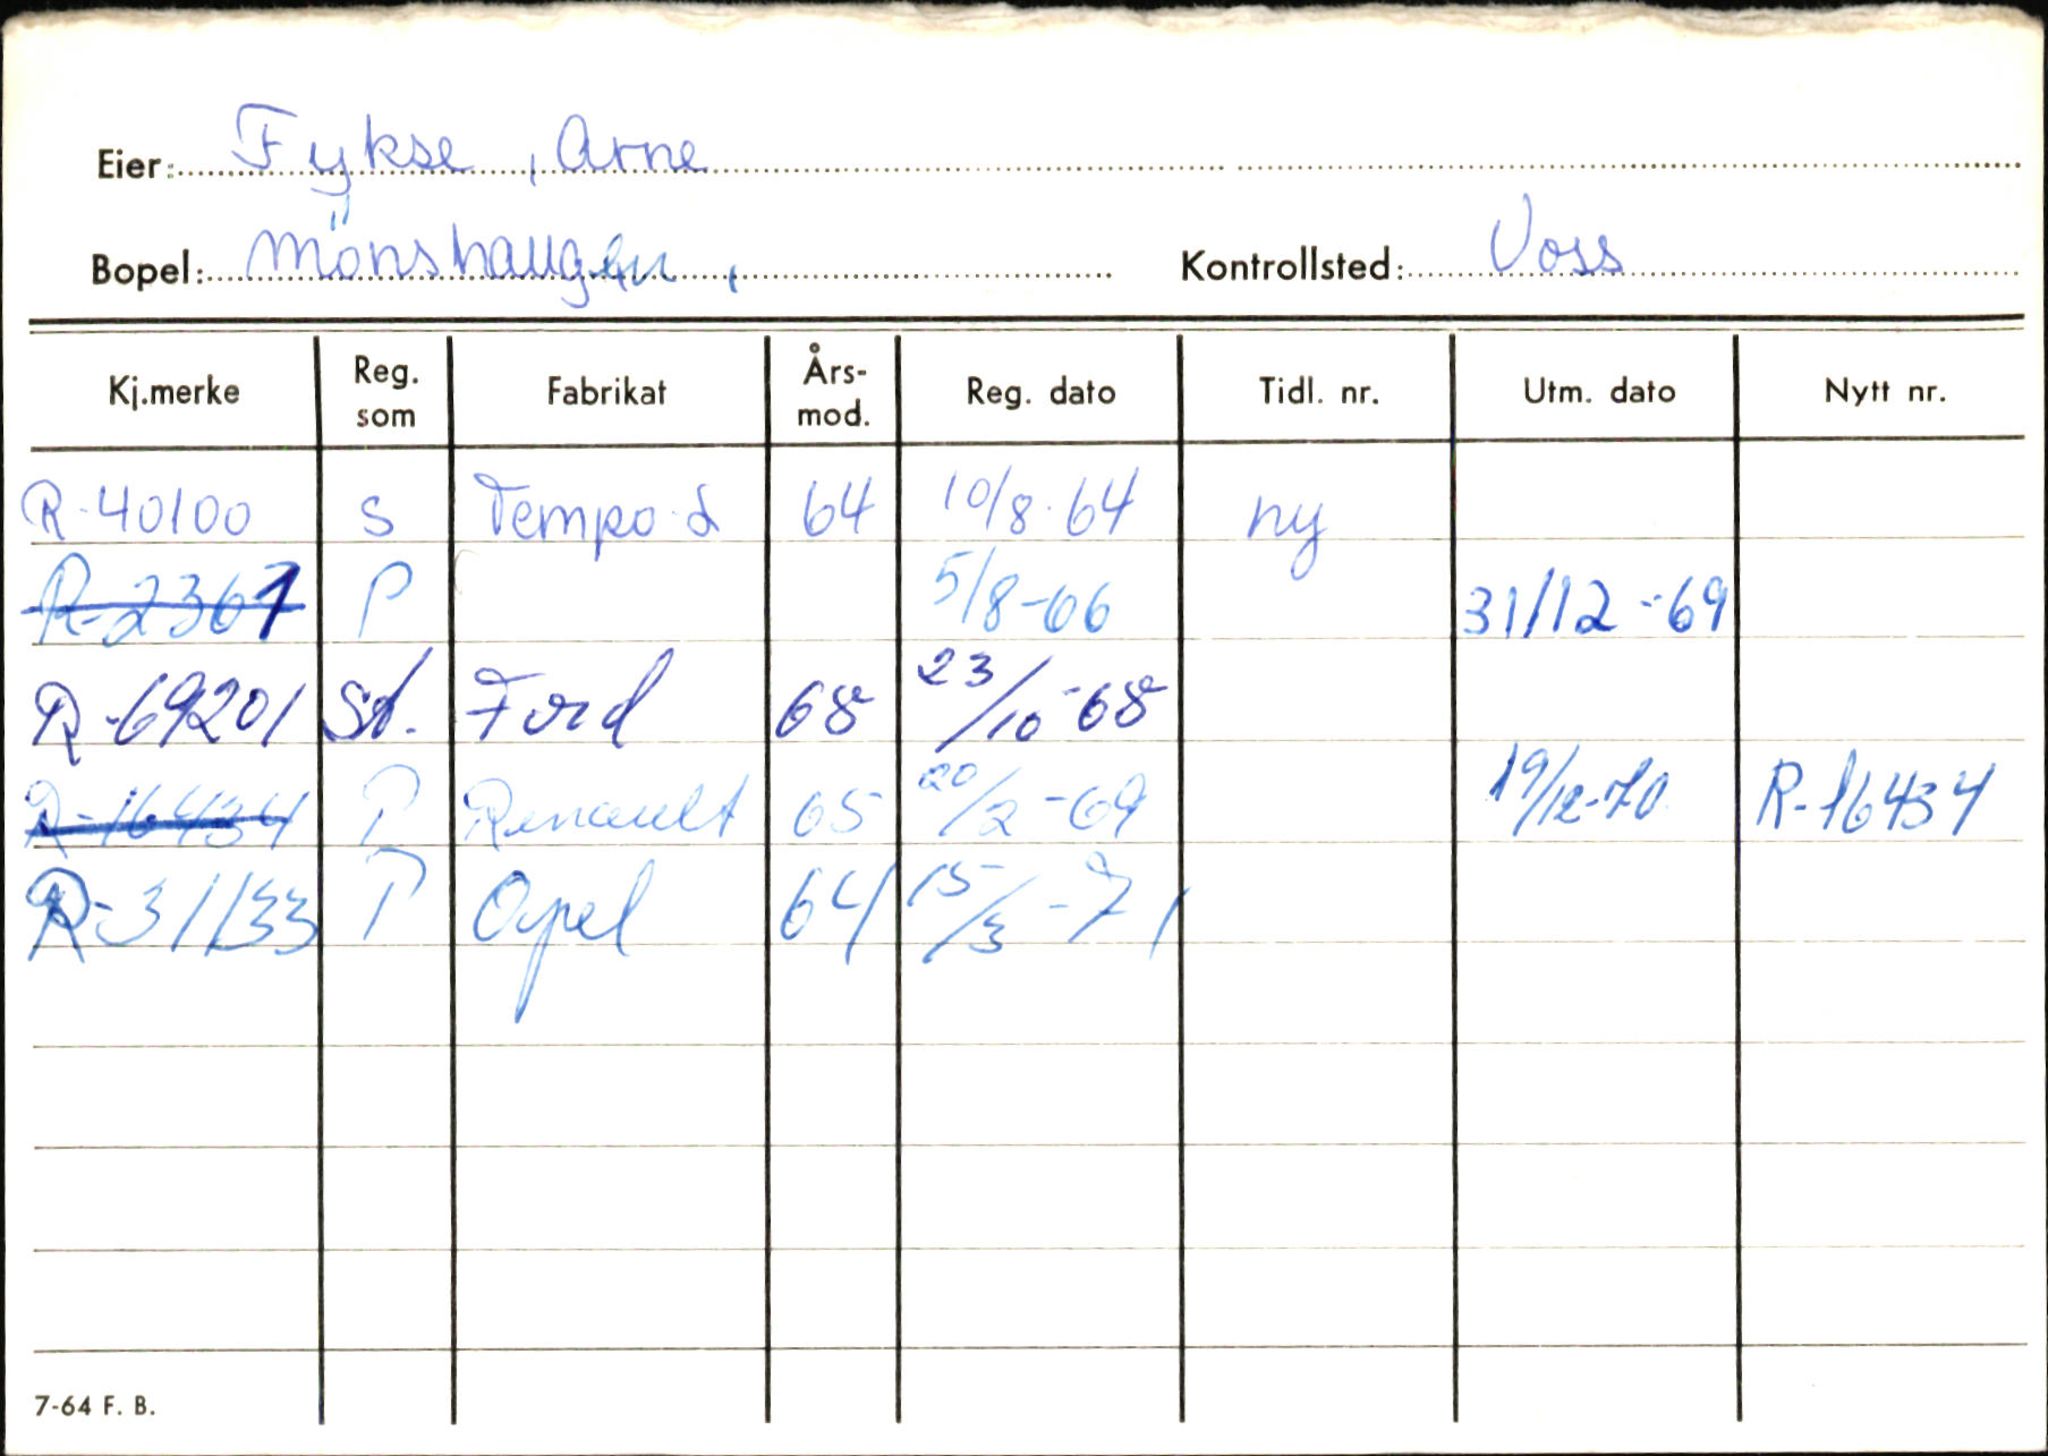 Eier: Fykse, Arne
Bopel: Mönshaugen, Kontrollsted: Voss
Kj.merke Reg. som Fabrikat Års-mod. Reg. dato Tidl. nr. Utm. dato Nytt nr.
R-40100 S Tempo 64 10/8-64 ny
R-2367 P 5/8-66 31/12-69
R-69201 St. Ford 68 23/10-68
R-16434 P Renault 65 20/2-69 19/12-70 R-16434
R-31133 P Opel 64 15/3-71
7-64 F. B.